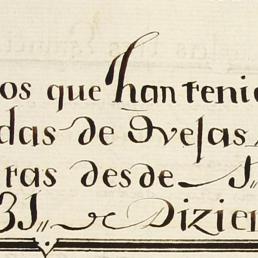 os que han teni
das de Ovejas
ras desde 1,,
31,, de Dizie